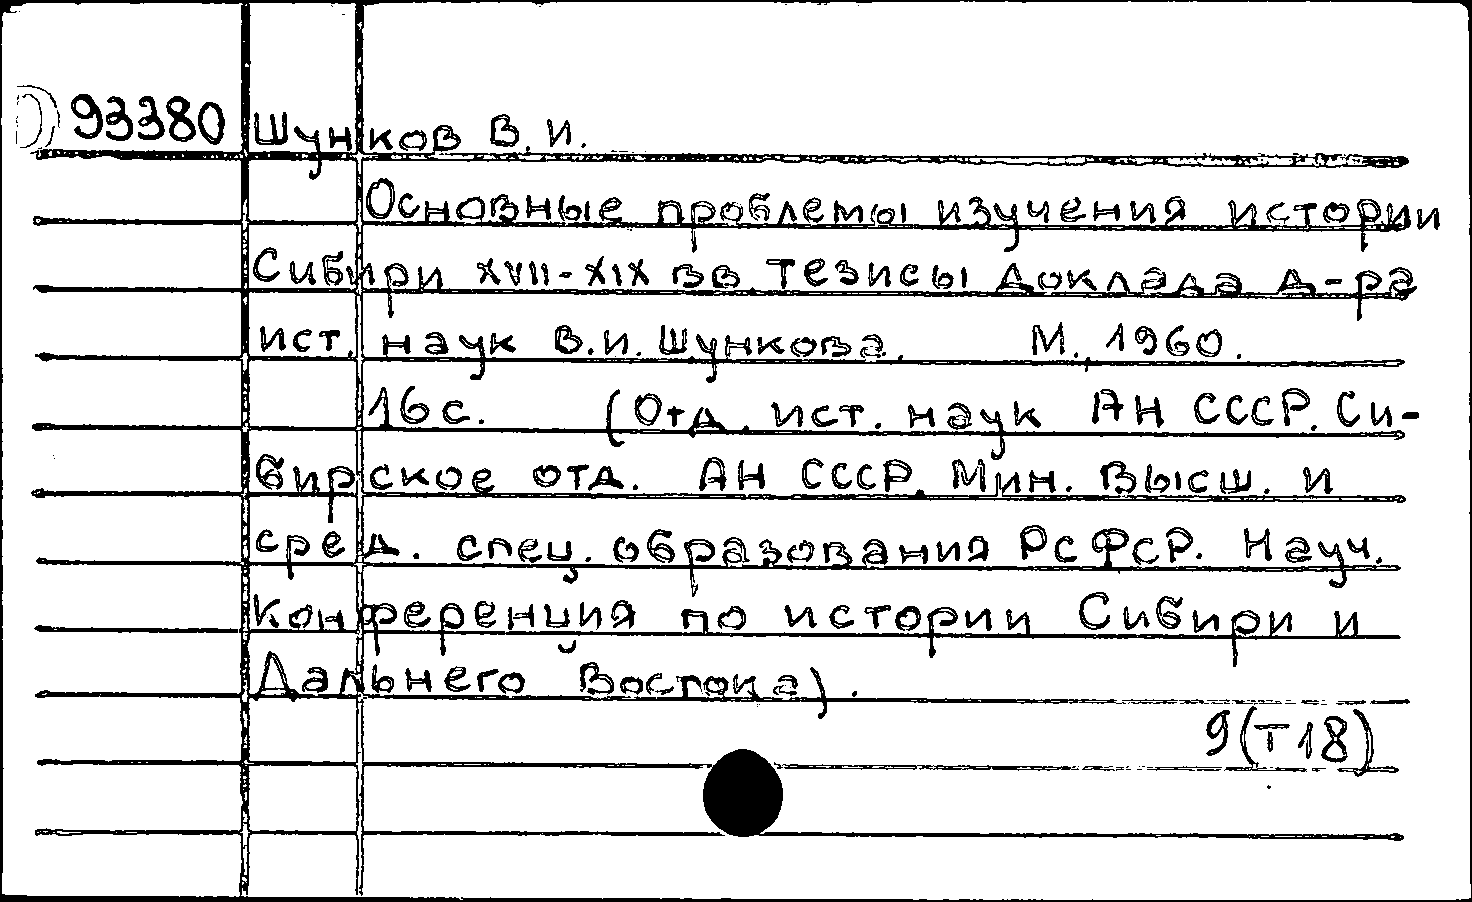 93380 Шунков В.И.
Основные проблемы изучения истории
Сибири XVII-XIX вв. Тезисы доклада д-ра
ист. наук В.И. Шункова. М., 1960.
16с. (Отд. ист. наук АН СССР. Си-
бирское отд. АН СССР. Мин. высш. и
сред. спец. образования РСФСР. Науч.
конференция по истории Сибири и
Дальнего Востока).
9(Т18)